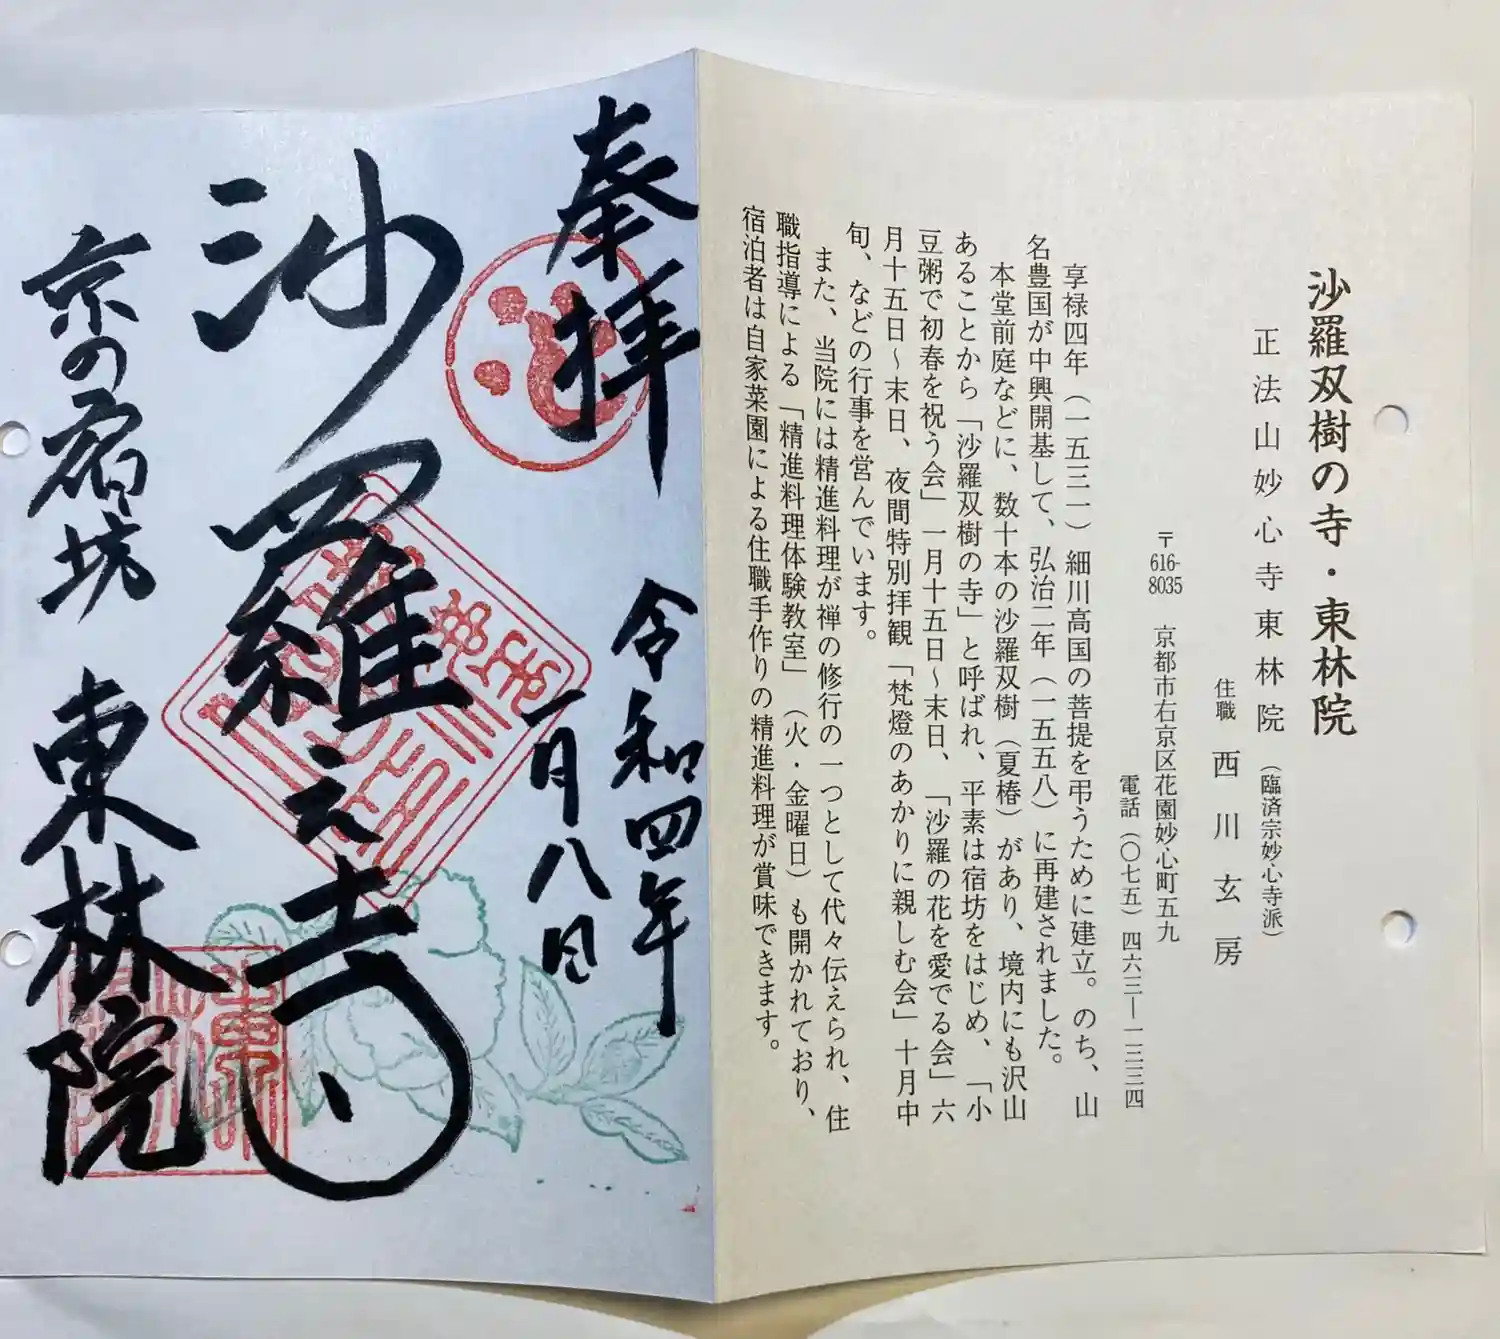 沙羅双樹の寺・東林院
正法山妙心寺東林院（臨済宗妙心寺派）
住職 西川玄房
〒616-8035 京都市右京区花園妙心町五九
電話（〇七五）四六三―一三三四
享禄四年（一五三一）細川高国の菩提を弔うために建立。のち、山
名豊国が中興開基して、弘治二年（一五五八）に再建されました。
本堂前庭などに、数十本の沙羅双樹（夏椿）があり、境内にも沢山
あることから「沙羅双樹の寺」と呼ばれ、平素は宿坊をはじめ、「小
豆粥で初春を祝う会」一月十五日～末日、「沙羅の花を愛でる会」六
月十五日～末日、夜間特別拝観「梵燈のあかりに親しむ会」十月中
旬、などの行事を営んでいます。
また、当院には精進料理が禅の修行の一つとして代々伝えられ、住
職指導による「精進料理体験教室」（火・金曜日）も開かれており、
宿泊者は自家菜園による住職手作りの精進料理が賞味できます。
奉拝
令和四年
一月八日
沙羅之寺
京の宿坊 東林院